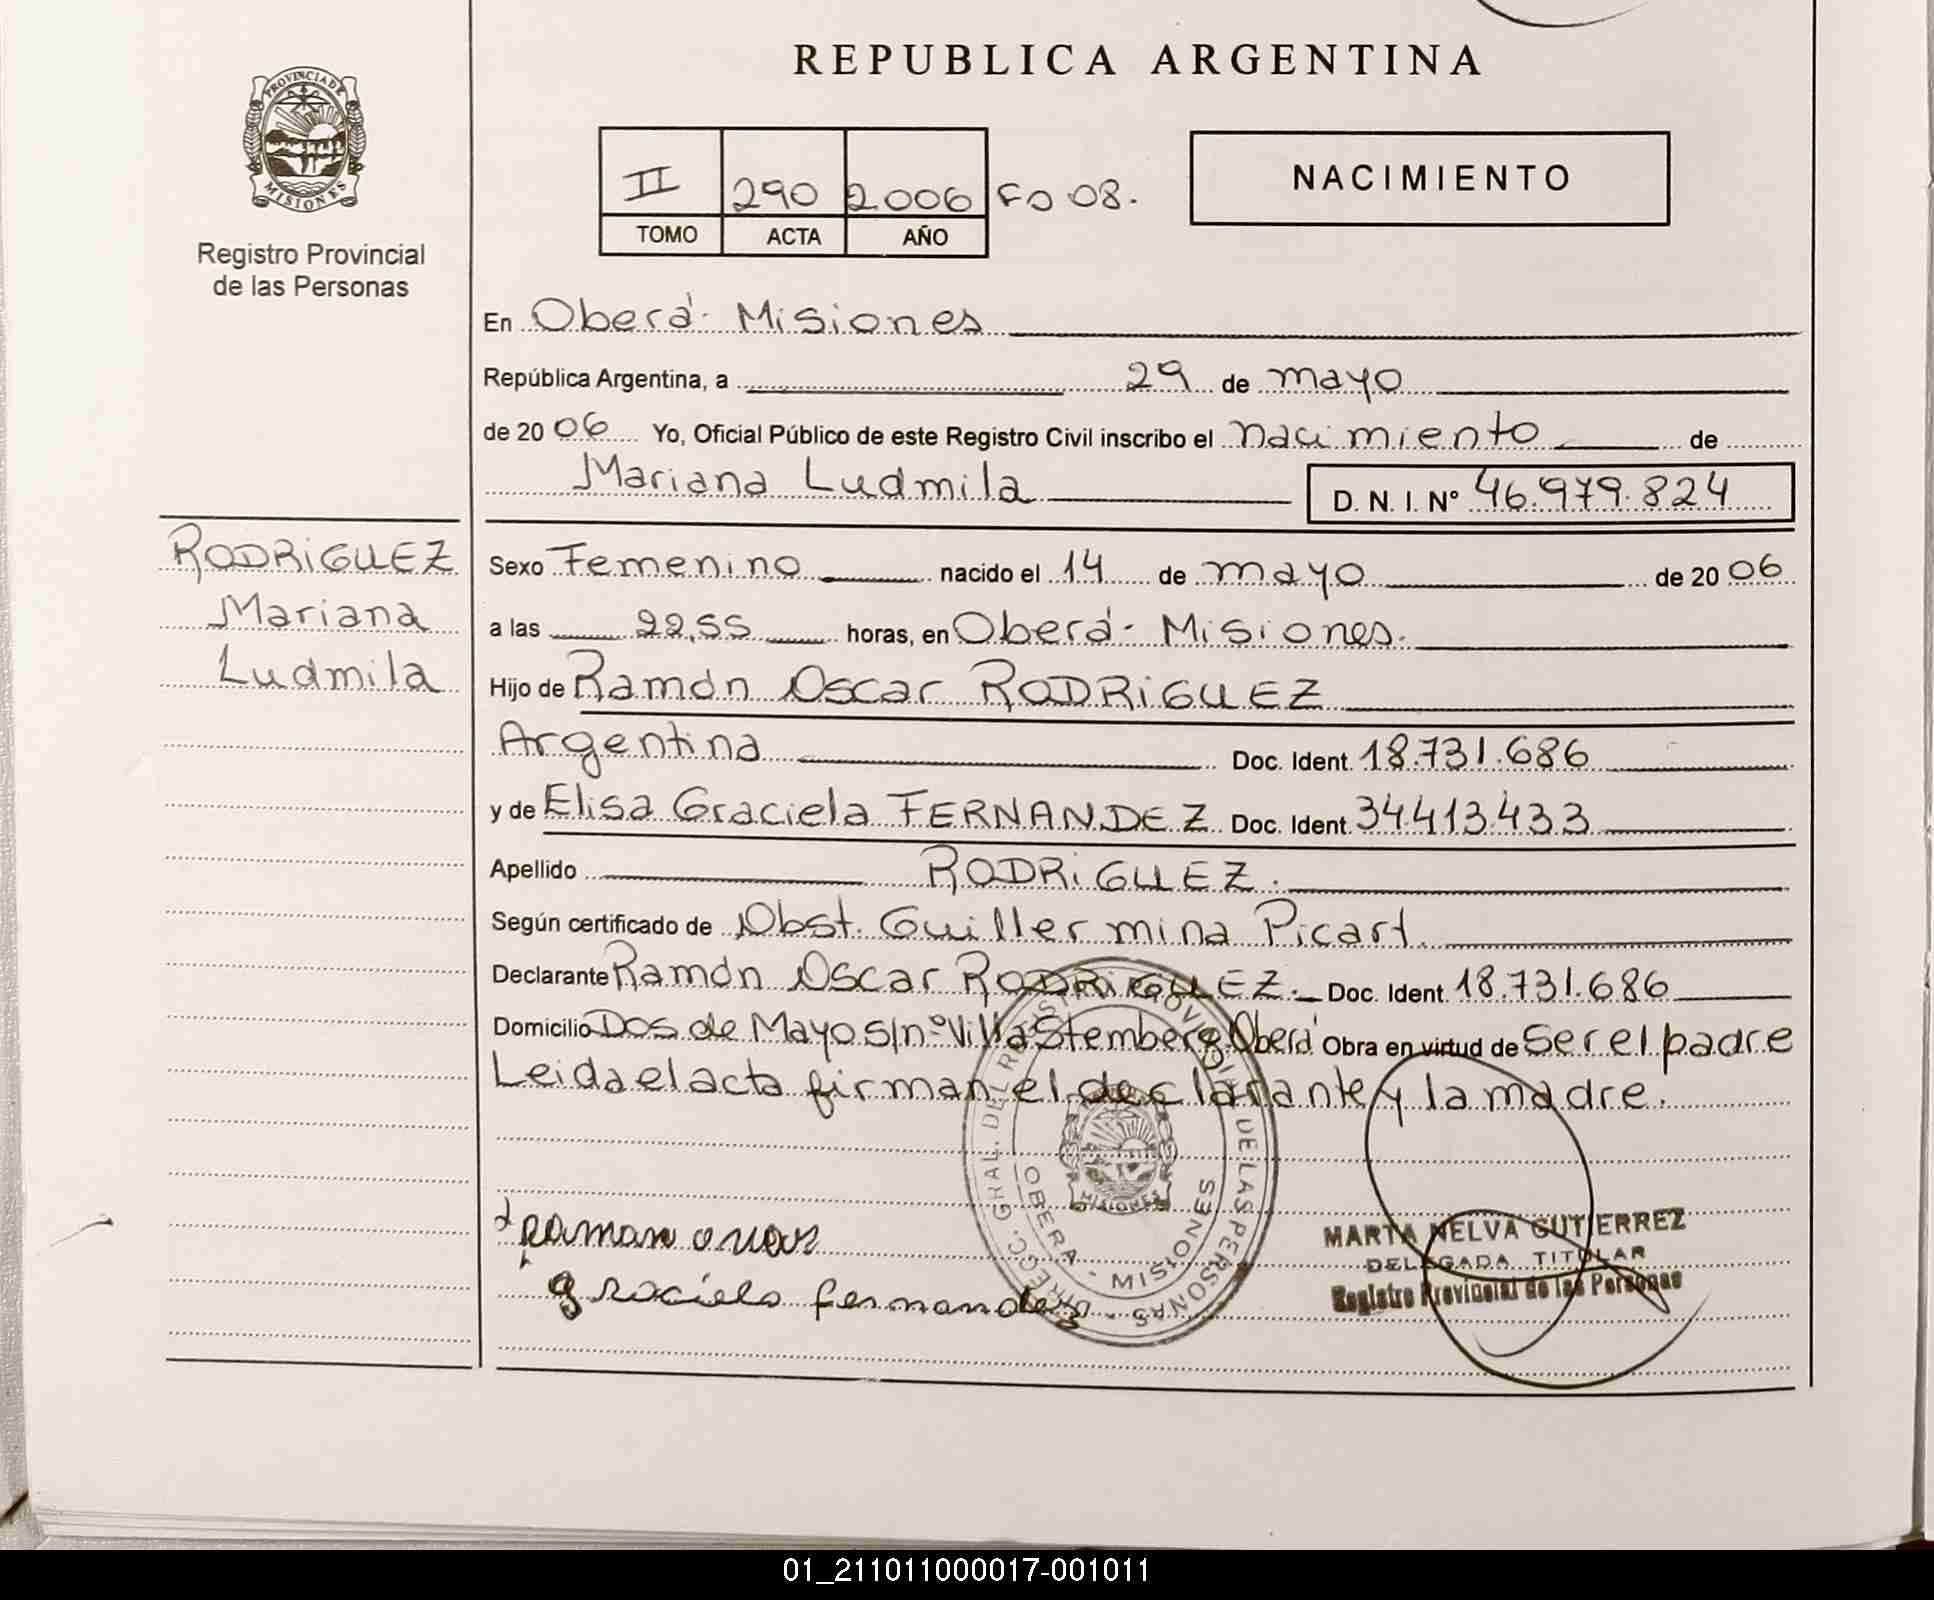 REPUBLICA ARGENTINA
PROVINCIA DE
MISIONES
Registro Provincial
de las Personas
II 290 2006 Fo 08.
TOMO ACTA AÑO
NACIMIENTO
En Oberá - Misiones
República Argentina, a 29 de mayo
de 2006 Yo, Oficial Público de este Registro Civil inscribo el nacimiento de
Mariana Ludmila D. N. I. Nº 46.979.824
RODRiGUEZ
Mariana
Ludmila
Sexo Femenino nacido el 14 de mayo de 2006
a las 22,55 horas, en Oberá - Misiones.
Hijo de Ramón Oscar RODRiGUEZ
Argentina Doc. Ident. 18.731.686
y de Elisa Graciela FERNANDEZ Doc. Ident. 34413433
Apellido RODRiGUEZ.
Según certificado de Obst. Guillermina Picart.
Declarante Ramón Oscar RODRiGUEZ. Doc. Ident. 18.731.686
Domicilio Dos de Mayo s/nº Villa Stemberg Oberá Obra en virtud de ser el padre
Leida el acta firman el declarante y la madre.
DIRECC. GRAL. DEL REGISTRO PROVINCIAL DE LAS PERSONAS
OBERA - MISIONES
MISIONES
graciela fernandez
MARTA NELVA GUTIERREZ
DELEGADA TITULAR
Registro Provincial de las Personas
01_211011000017-001011